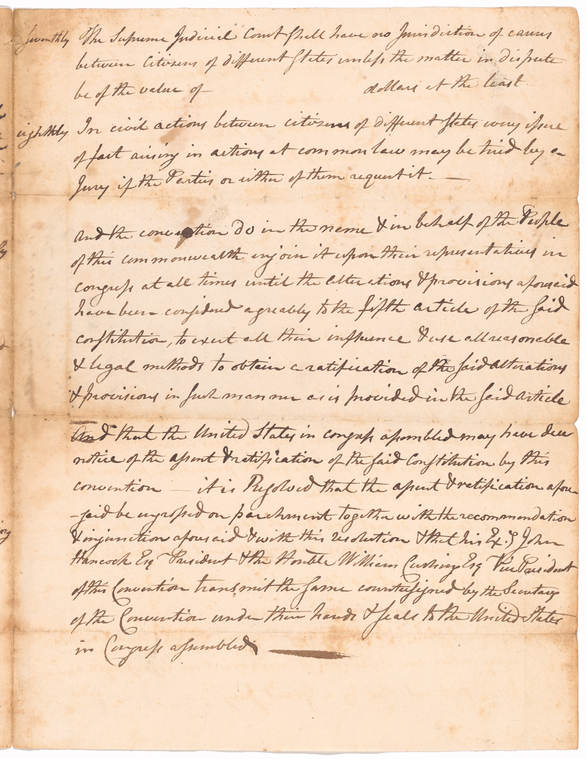 Seventhly The Supreme Judicial Court shall have no Jurisdiction of causes
between Citizens of different States unless the matter in dispute
be of the value of dollars at the least
eighthly In civil actions between citizens of different States every issue
of fact arising in actions at common law may be tried by a
Jury if the Parties or either of them request it. —
And the convention do in the name & in behalf of the People
of this commonwealth enjoin it upon their representatives in
Congress at all times until the alterations & provisions aforesaid
have been considered agreably to the fifth article of the said
constitution, to exert all their influence & use all reasonable
& legal methods to obtain a ratification of the said alterations
& provisions in such manner as is provided in the said article
And that the United States in congress assembled may have due
notice of the assent & ratification of the said Constitution by this
convention — it is Resolved that the assent & ratification afore-
-said be ingrossed on parchment together with the recommendation
& injunction aforesaid & with this resolution & that his Exy John
Hancock Esq President & the Honble William Cushing Esq Vice President
of this Convention transmit the same countersigned by the Secretary
of the Convention under their hands & seals to the United States
in Congress assembled —